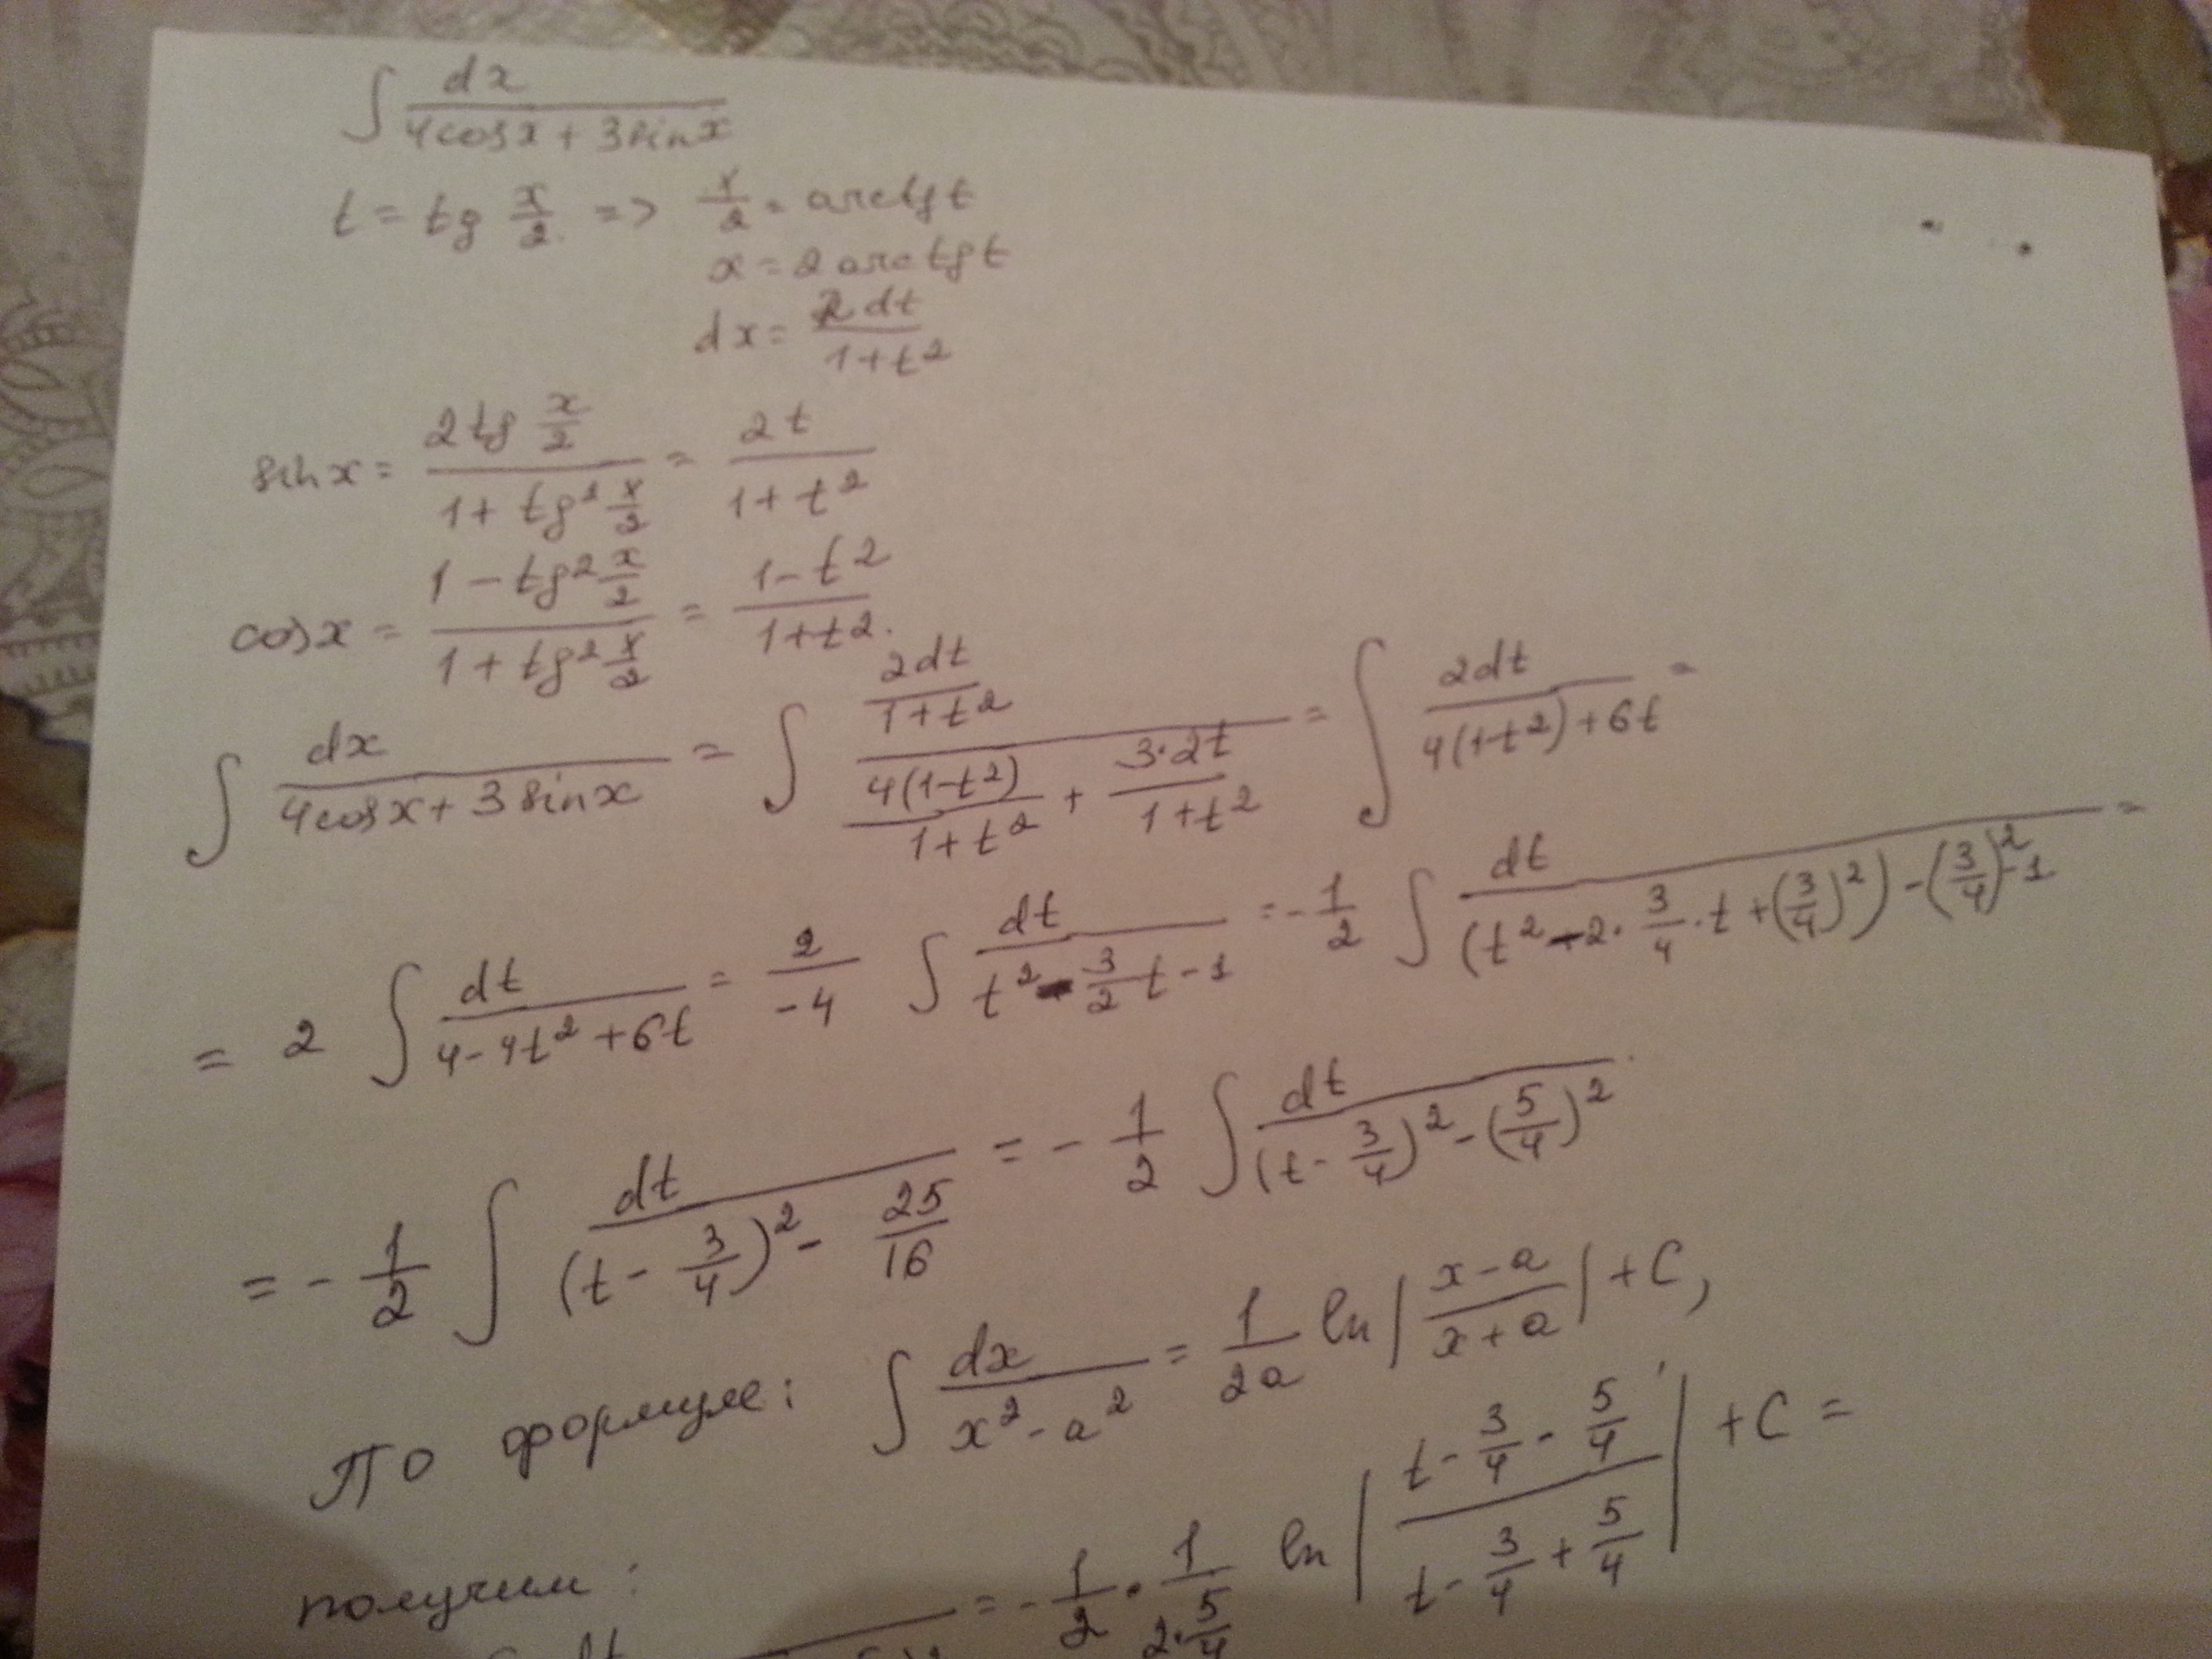 ∫ dx / (4cosx + 3sinx)
t = tg x/2 => x/2 = arctgt
x = 2 arctgt
dx = 2dt / (1+t²)
sinx = 2tg x/2 / (1 + tg² x/2) = 2t / (1+t²)
cosx = (1 - tg² x/2) / (1 + tg² x/2) = (1-t²) / (1+t²).
∫ dx / (4cosx + 3sinx) = ∫ (2dt / (1+t²)) / (4(1-t²) / (1+t²) + 3·2t / (1+t²)) = ∫ 2dt / (4(1-t²) + 6t) =
= 2 ∫ dt / (4-4t²+6t) = 2/-4 ∫ dt / (t² - 3/2 t - 1) = -1/2 ∫ dt / ((t² - 2·3/4·t + (3/4)²) - (3/4)² - 1) =
= -1/2 ∫ dt / ((t - 3/4)² - 25/16) = -1/2 ∫ dt / ((t - 3/4)² - (5/4)²)
По формуле: ∫ dx / (x² - a²) = 1/2a ln|(x-a)/(x+a)| + C,
получим:
= -1/2 · 1/(2·5/4) ln|(t - 3/4 - 5/4) / (t - 3/4 + 5/4)| + C =